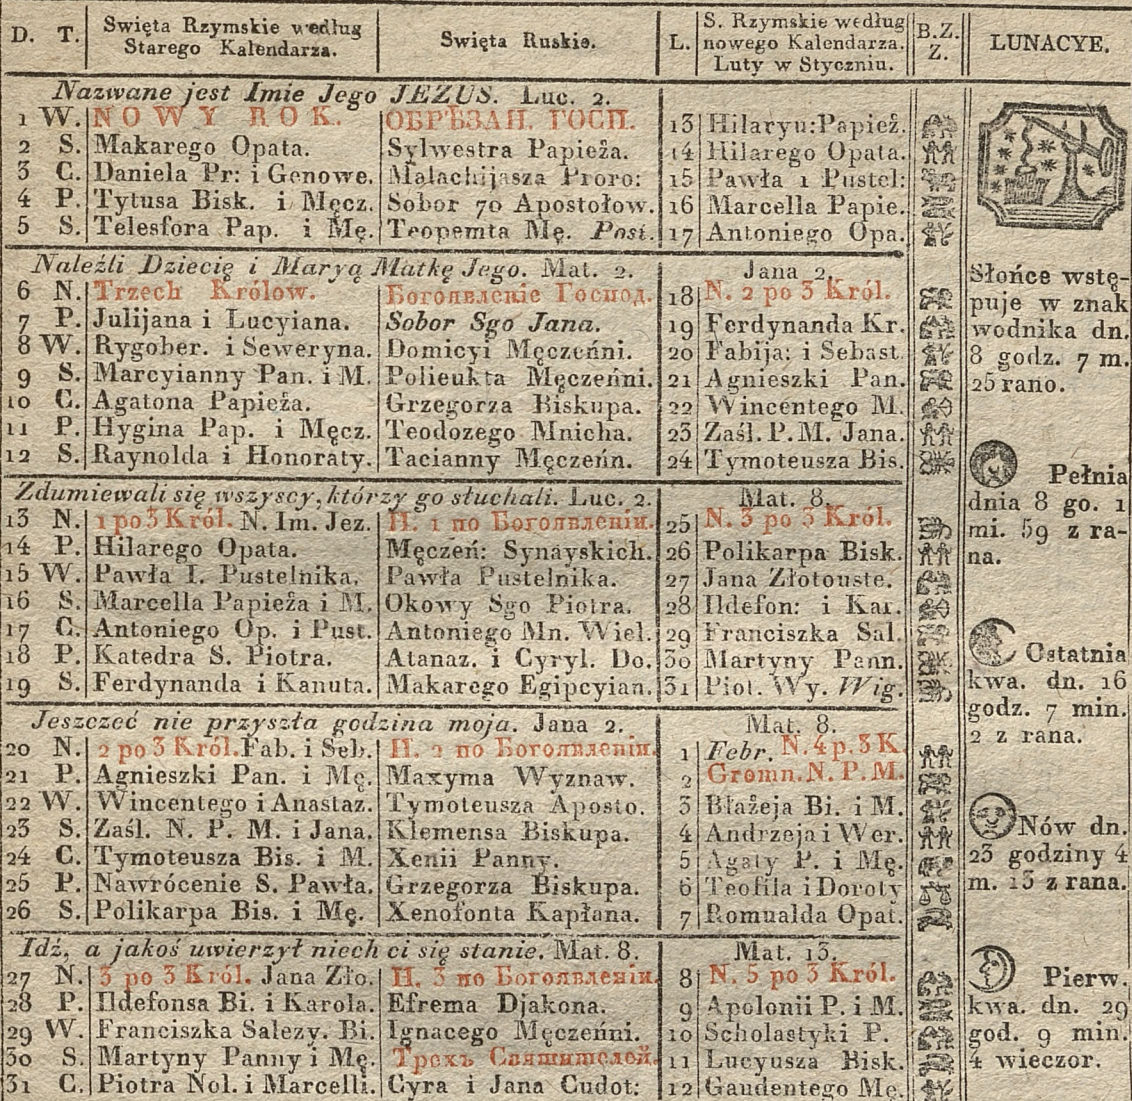 D. T. Swięta Rzymskie według Starego Kalendarza. Swięta Ruskie. L. S. Rzymskie według nowego Kalendarza. Luty w Styczniu. B.Z. Z. LUNACYE.
Nazwane jest Imie Jego JEZUS. Luc. 2.
1 W. NOWY ROK. ОБРѢЗАН. ГОСП. 13 Hilaryu: Papież.
2 S. Makarego Opata. Sylwestra Papieża. 14 Hilarego Opata.
3 C. Daniela Pr: i Genowe. Malachijasza Proro: 15 Pawła 1 Pustel:
4 P. Tytusa Bisk. i Męcz. Sobor 70 Apostołow. 16 Marcella Papie.
5 S. Telesfora Pap. i Mę. Teopemta Mę. Post. 17 Antoniego Opa.
Naleźli Dziecię i Maryą Matkę Jego. Mat. 2. Jana 2.
6 N. Trzech Królow. Богоявленіе Господ. 18 N. 2 po 3 Król.
7 P. Julijana i Lucyiana. Sobor Sgo Jana. 19 Ferdynanda Kr.
8 W. Rygober. i Seweryna. Domicyi Męczeńni. 20 Fabija: i Sebast.
9 S. Marcyianny Pan. i M. Polieukta Męczeńni. 21 Agnieszki Pan.
10 C. Agatona Papieża. Grzegorza Biskupa. 22 Wincentego M.
11 P. Hygina Pap. i Męcz. Teodozego Mnicha. 23 Zaśl. P. M. Jana.
12 S. Raynolda i Honoraty. Tacianny Męczeńn. 24 Tymoteusza Bis.
Zdumiewali się wszyscy, którzy go słuchali. Luc. 2. Mat. 8.
13 N. 1 po 3 Król. N. Im. Jez. Н. 1 по Богоявленіи. 25 N. 3 po 3 Król.
14 P. Hilarego Opata. Męczeń: Synayskich. 26 Polikarpa Bisk.
15 W. Pawła I. Pustelnika. Pawła Pustelnika. 27 Jana Złotouste.
16 S. Marcella Papieża i M. Okowy Sgo Piotra. 28 Ildefon: i Kar.
17 C. Antoniego Op. i Pust. Antoniego Mn. Wiel. 29 Franciszka Sal.
18 P. Katedra S. Piotra. Atanaz. i Cyryl. Do. 30 Martyny Pann.
19 S. Ferdynanda i Kanuta. Makarego Egipcyian. 31 Piot. Wy. Wig.
Jeszczeć nie przyszła godzina moja. Jana 2. Mat. 8.
20 N. 2 po 3 Król. Fab. i Seb. Н. 2 по Богоявленіи. 1 Febr. N. 4 p. 3 K.
21 P. Agnieszki Pan. i Mę. Maxyma Wyznaw. 2 Gromn. N. P. M.
22 W. Wincentego i Anastaz. Tymoteusza Aposto. 3 Błażeja Bi. i M.
23 S. Zaśl. N. P. M. i Jana. Klemensa Biskupa. 4 Andrzeja i Wer.
24 C. Tymoteusza Bis. i M. Xenii Panny. 5 Agaty P. i Mę.
25 P. Nawrócenie S. Pawła. Grzegorza Biskupa. 6 Teofila i Doroty
26 S. Polikarpa Bis. i Mę. Xenofonta Kapłana. 7 Romualda Opat.
Idź, a jakoś uwierzył niech ci się stanie. Mat. 8. Mat. 13.
27 N. 3 po 3 Król. Jana Zło. Н. 3 по Богоявленіи. 8 N. 5 po 3 Król.
28 P. Ildefonsa Bi. i Karola. Efrema Djakona. 9 Apolonii P. i M.
29 W. Franciszka Salezy. Bi. Ignacego Męczeńni. 10 Scholastyki P.
30 S. Martyny Panny i Mę. Трехъ Святителей. 11 Lucyusza Bisk.
31 C. Piotra Nol. i Marcelli. Cyra i Jana Cudot: 12 Gaudentego Mę.
Słońce wstę-
puje w znak
wodnika dn.
8 godz. 7 m.
25 rano.
Pełnia
dnia 8 go. 1
mi. 59 z ra-
na.
Ostatnia
kwa. dn. 16
godz. 7 min.
2 z rana.
Nów dn.
23 godziny 4
m. 13 z rana.
Pierw.
kwa. dn. 29
god. 9 min.
4 wieczor.